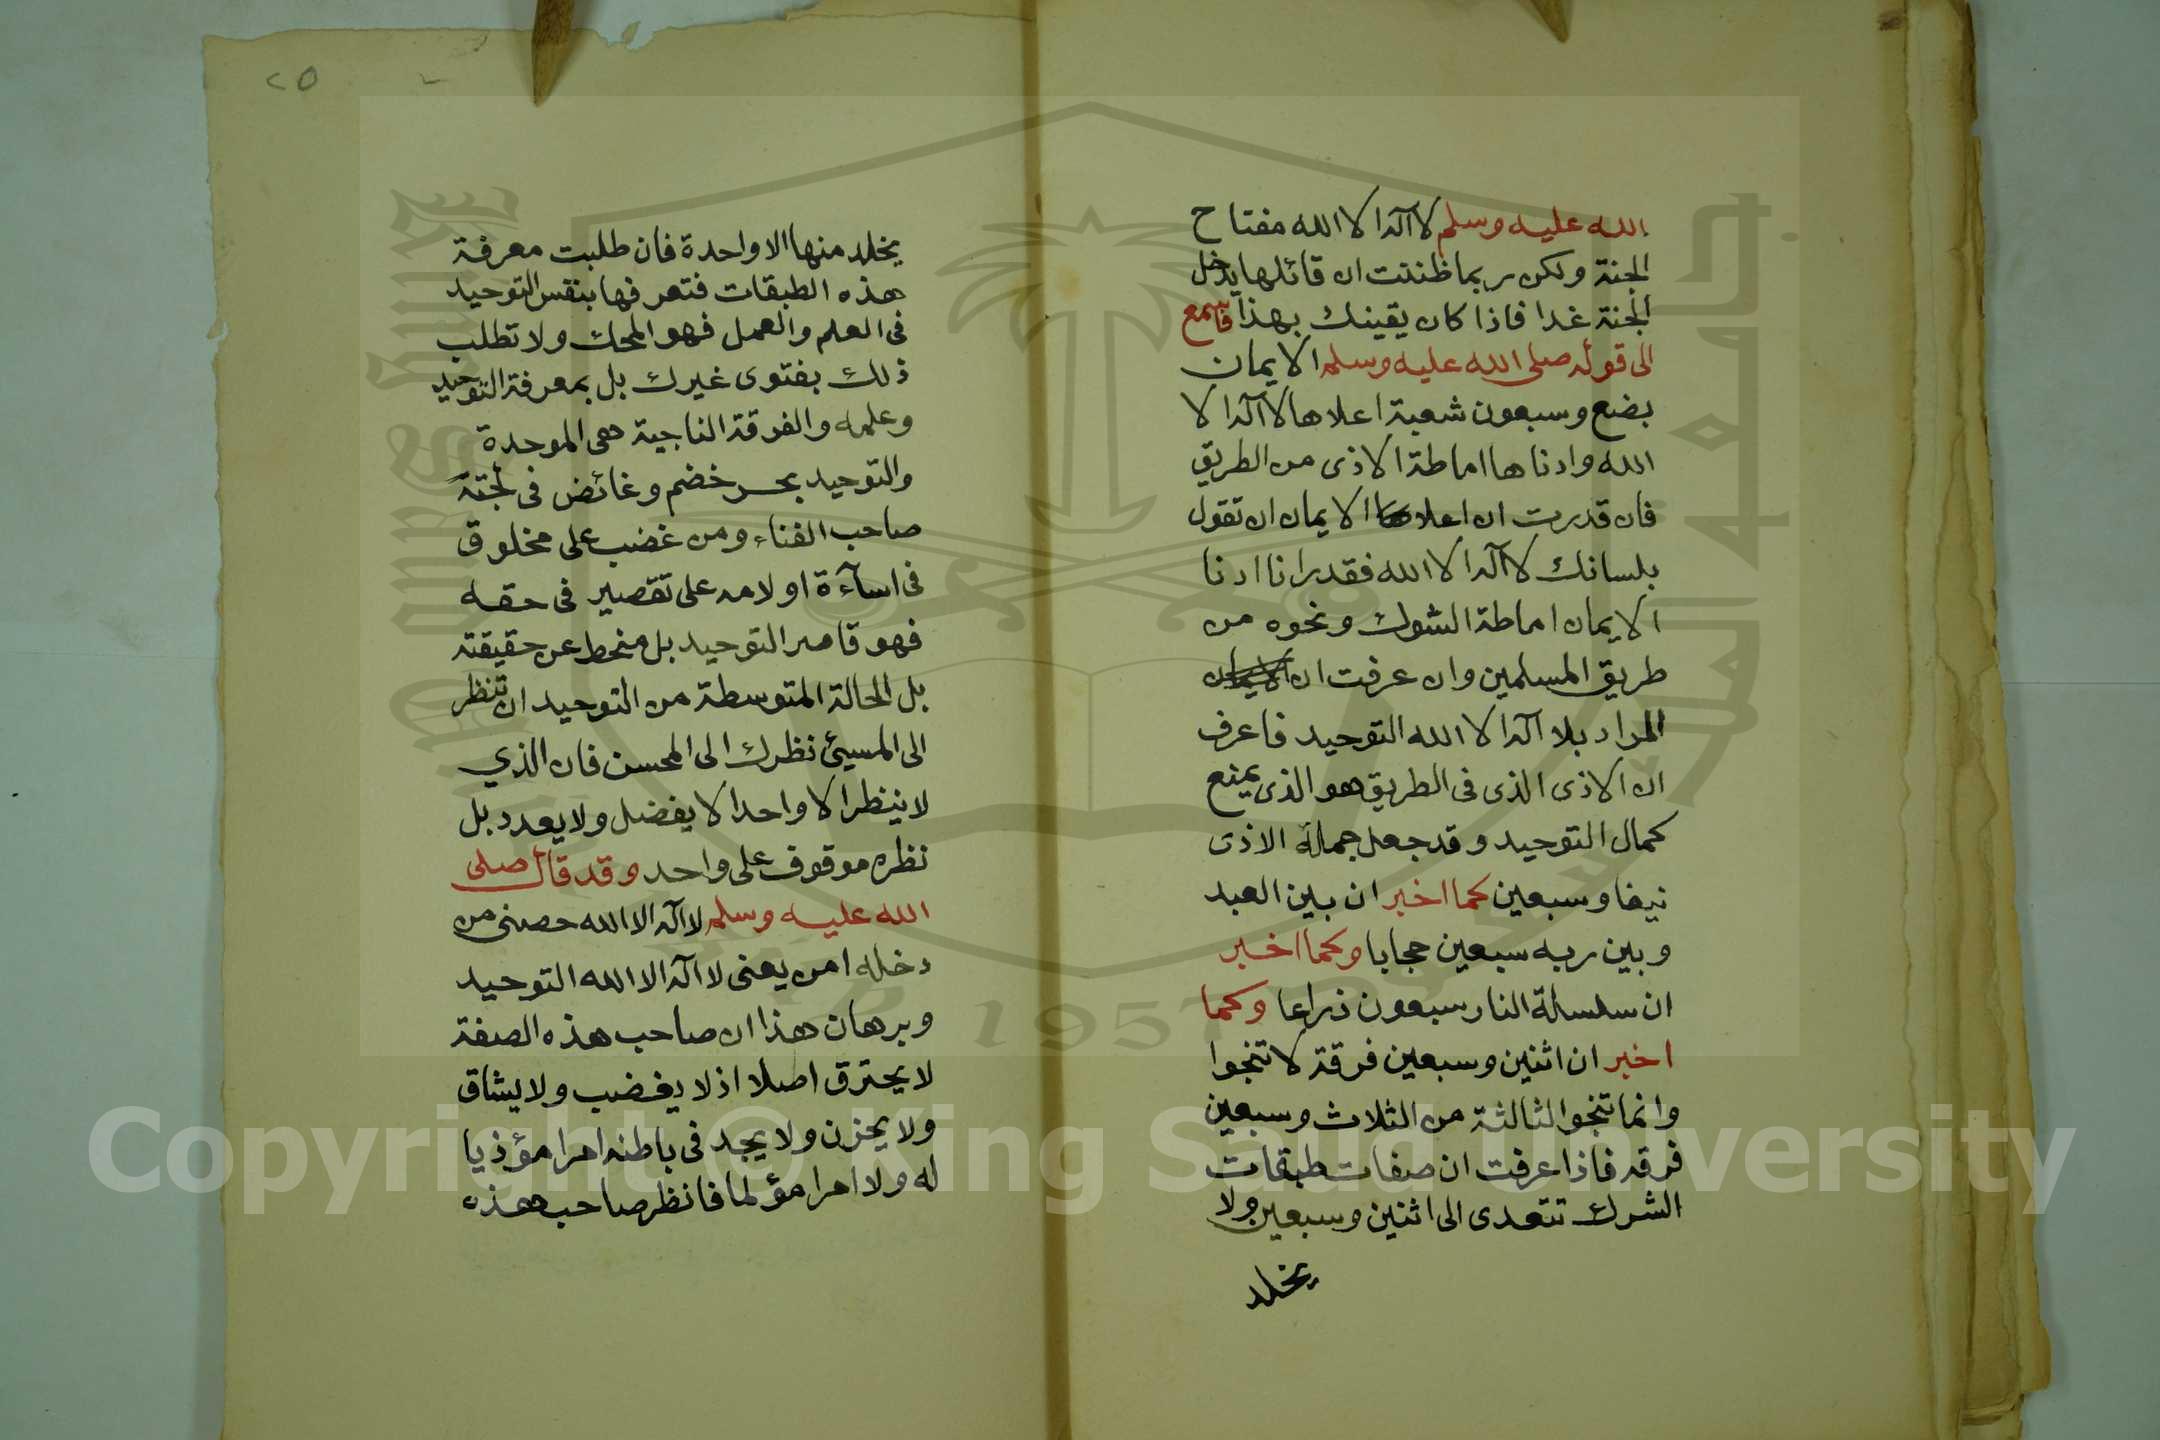 الله عليه وسلم لا اله الا الله مفتاح
الجنة ولكن ربما ظننت ان قائلها يدخل
الجنة غدا فاذا كان يقينك بهذا فاسمع
الى قوله صلى الله عليه وسلم الايمان
بضع وسبعون شعبة اعلاها لا اله الا
الله وادناها اماطة الاذى من الطريق
فان قدرت ان اعلا الايمان ان تقول
بلسانك لا اله الا الله فقدرانا ادنا
الايمان اماطة الشوك ونحوه من
طريق المسلمين وان عرفت ان
المراد بلا اله الا الله التوحيد فاعرف
ان الاذى الذى فى الطريق هو الذى يمنع
كمال التوحيد وقد جعل جملة الاذى
نيفا وسبعين كما اخبر ان بين العبد
وبين ربه سبعين حجابا وكما اخبر
ان سلسلة النار سبعون ذراعا وكما
اخبر ان اثنين وسبعين فرقة لا تنجوا
وانما تنجوا الثالثة من الثلاث وسبعين
فرقه فاذا عرفت ان صفات طبقات
الشرك تتعدى الى اثنين وسبعين ولا
يخلد
٢٥
يخلد منها الا واحدة فان طلبت معرفة
هذه الطبقات فتعرفها بنفس التوحيد
فى العلم والعمل فهو المحك ولا تطلب
ذلك بفتوى غيرك بل بمعرفة التوحيد
وعلمه والفرقة الناجية هى الموحدة
والتوحيد بحر خضم وغائض فى لجته
صاحب الفناء ومن غضب على مخلوق
فى اساءة او لامه على تقصير فى حقه
فهو قاصر التوحيد بل منحط عن حقيقته
بل الحالة المتوسطة من التوحيد ان تنظر
الى المسيئ نظرك الى المحسن فان الذي
لا ينظر الا واحدا لا يفضل ولا يعدد بل
نظره موقوف على واحد وقد قال صلى
الله عليه وسلم لا اله الا الله حصنى من
دخله امن يعنى لا اله الا الله التوحيد
وبرهان هذا ان صاحب هذه الصفة
لا يحترق اصلا اذ لا يغضب ولا يشاق
ولا يحزن ولا يجد فى باطنه امرا مؤذيا
له ولا امرا مؤلما فانظر صاحب هذه
Copyright © King Saud University
1957